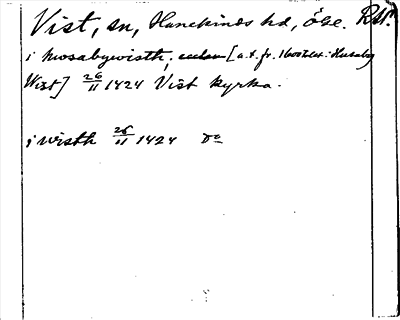 Vist, sn, Hanekinds hd, Ögl. RW.
i hosabywisth, [a.t. fr. 1600-talet: Husaby
Wist] 26/11 1424 Vist kyrka.
i wisth 26/11 1424 do